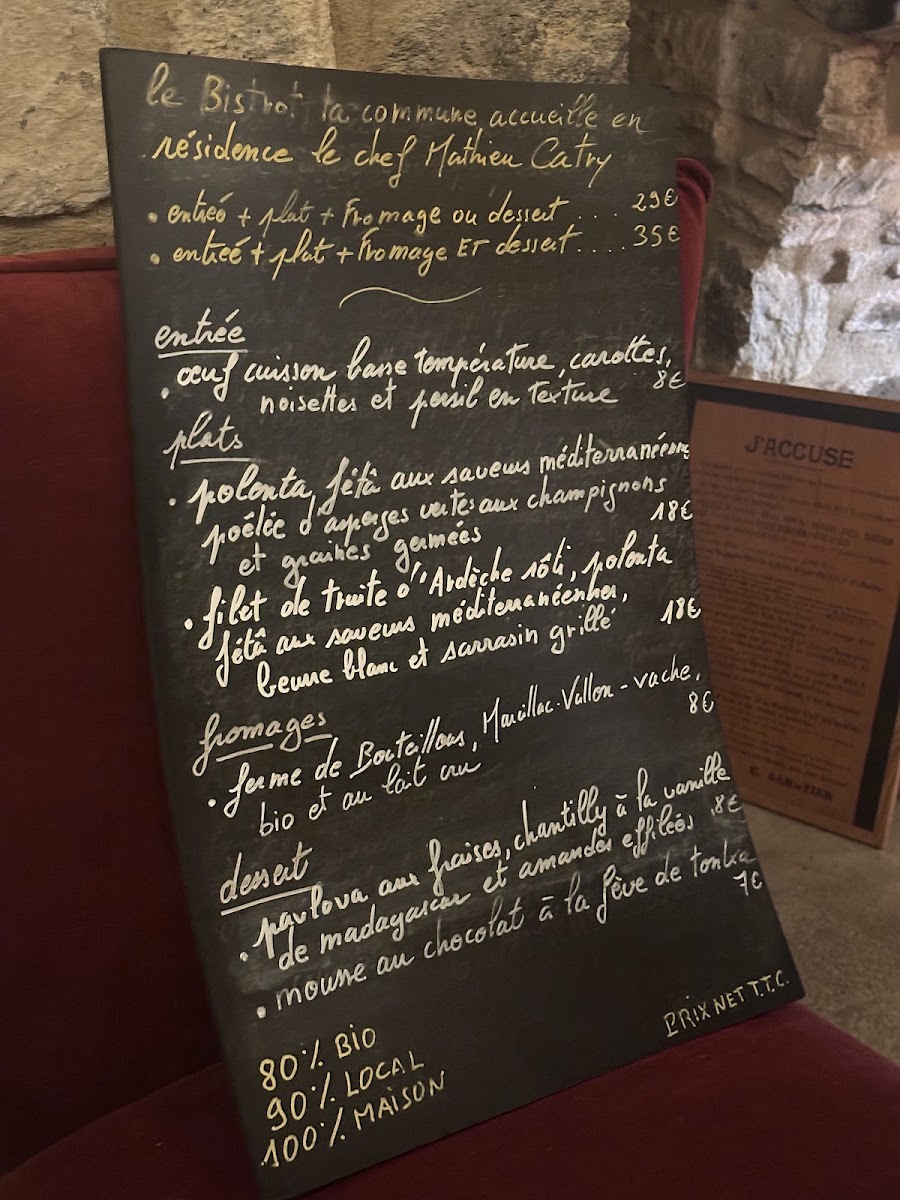 le Bistrot la commune accueille en
résidence le chef Mathieu Catry
• entrée + plat + Fromage ou dessert .... 29€
• entrée + plat + Fromage ET dessert .... 35€
entrée
• œuf cuisson basse température, carottes,
noisettes et persil en texture 8€
plats
• polenta, fêtâ aux saveurs méditerranéenne
poêlée d'asperges vertes aux champignons
et graines germées 18€
• filet de truite d'Ardèche rôti, polenta
fêtâ aux saveurs méditerranéennes,
beurre blanc et sarrasin grillé 18€
fromages
• ferme de Bouteillous, Marcillac-Vallon - vache,
bio et au lait cru 8€
dessert
• pavlova aux fraises, chantilly à la vanille
de madagascar et amandes effilées 8€
• mousse au chocolat à la fève de tonka
7€
PRIX NET T.T.C.
80% BIO
90% LOCAL
100% MAISON
J'ACCUSE